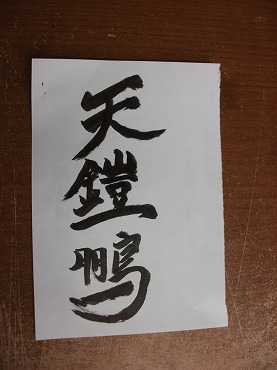 天鎧鵬